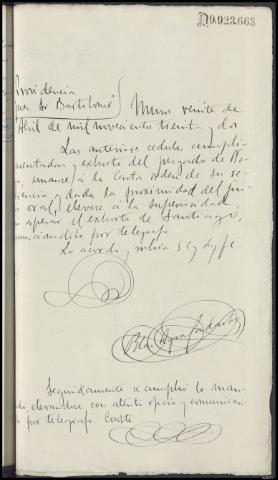 D 9.923.663
Providencia
Juez Sr Bartolomé } Muros veinte de
Abril de mil novecientos treinta y dos
Las anteriores cedulas cumpli-
mentadas y exhorto del juzgado de No-
ya, únanse á la Carta orden de su re-
ferencia y dada la proximidad del jui-
cio oral, elevese á la Superioridad
sin esperar el exhorto de Santiago,
anunciandolo por telegrafo
Lo acordó y rubrica Sª Sª doy fe
Seguidamente se cumplió lo man-
dado, elevandose con atento oficio y comunican-
do por telegrafo. Conste